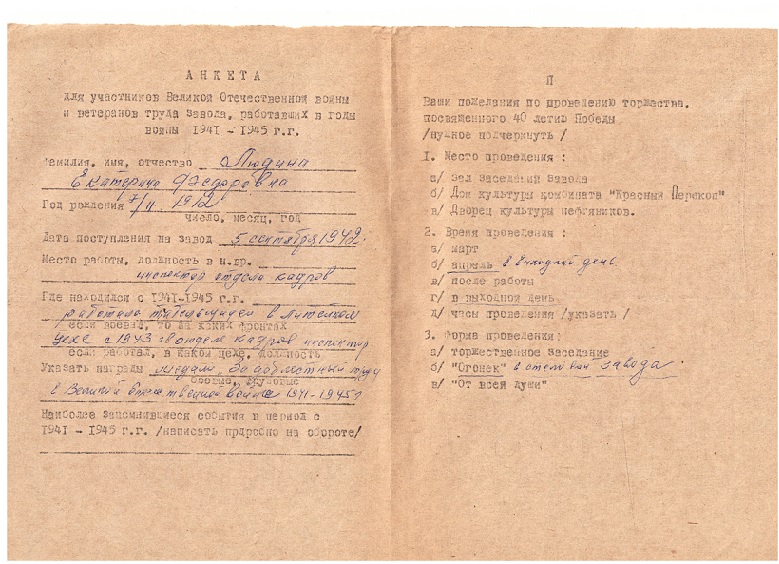 АНКЕТА
для участников Великой Отечественной войны
и ветеранов труда завода, работавших в годы
войны 1941 - 1945 г.г.
Фамилия, имя, отчество Людина
Екатерина Федоровна
Год рождения 7/II 1912
число, месяц, год
Дата поступления на завод 5 сентября 1942г.
Место работы, должность в н.вр.
инспектор отдела кадров
Где находился с 1941-1945 г.г.
работала табельщицей в литейном
если воевал, то на каких фронтах
цехе с 1943 г в отделе кадров инспектор
если работал, в каком цехе, должность
Указать награды медаль "За доблестный труд
боевые, трудовые
в Великой Отечественной войне 1941-1945г
Наиболее запомнившиеся события в период с
1941 - 1945 г.г. /написать подробно на обороте/
П
Ваши пожелания по проведению торжества,
посвященного 40 летию Победы
/нужное подчеркнуть/
1. Место проведения :
а/ Зал заседаний завода
б/ Дом культуры комбината "Красный Перекоп"
в/ Дворец культуры нефтяников.
2. Время проведения :
а/ март
б/ апрель в выходной день
в/ после работы
г/ в выходной день
д/ часы проведения /указать/
3. Форма проведения:
а/ торжественное заседание
б/ "Огонек" в столовой завода.
в/ "От всей души"